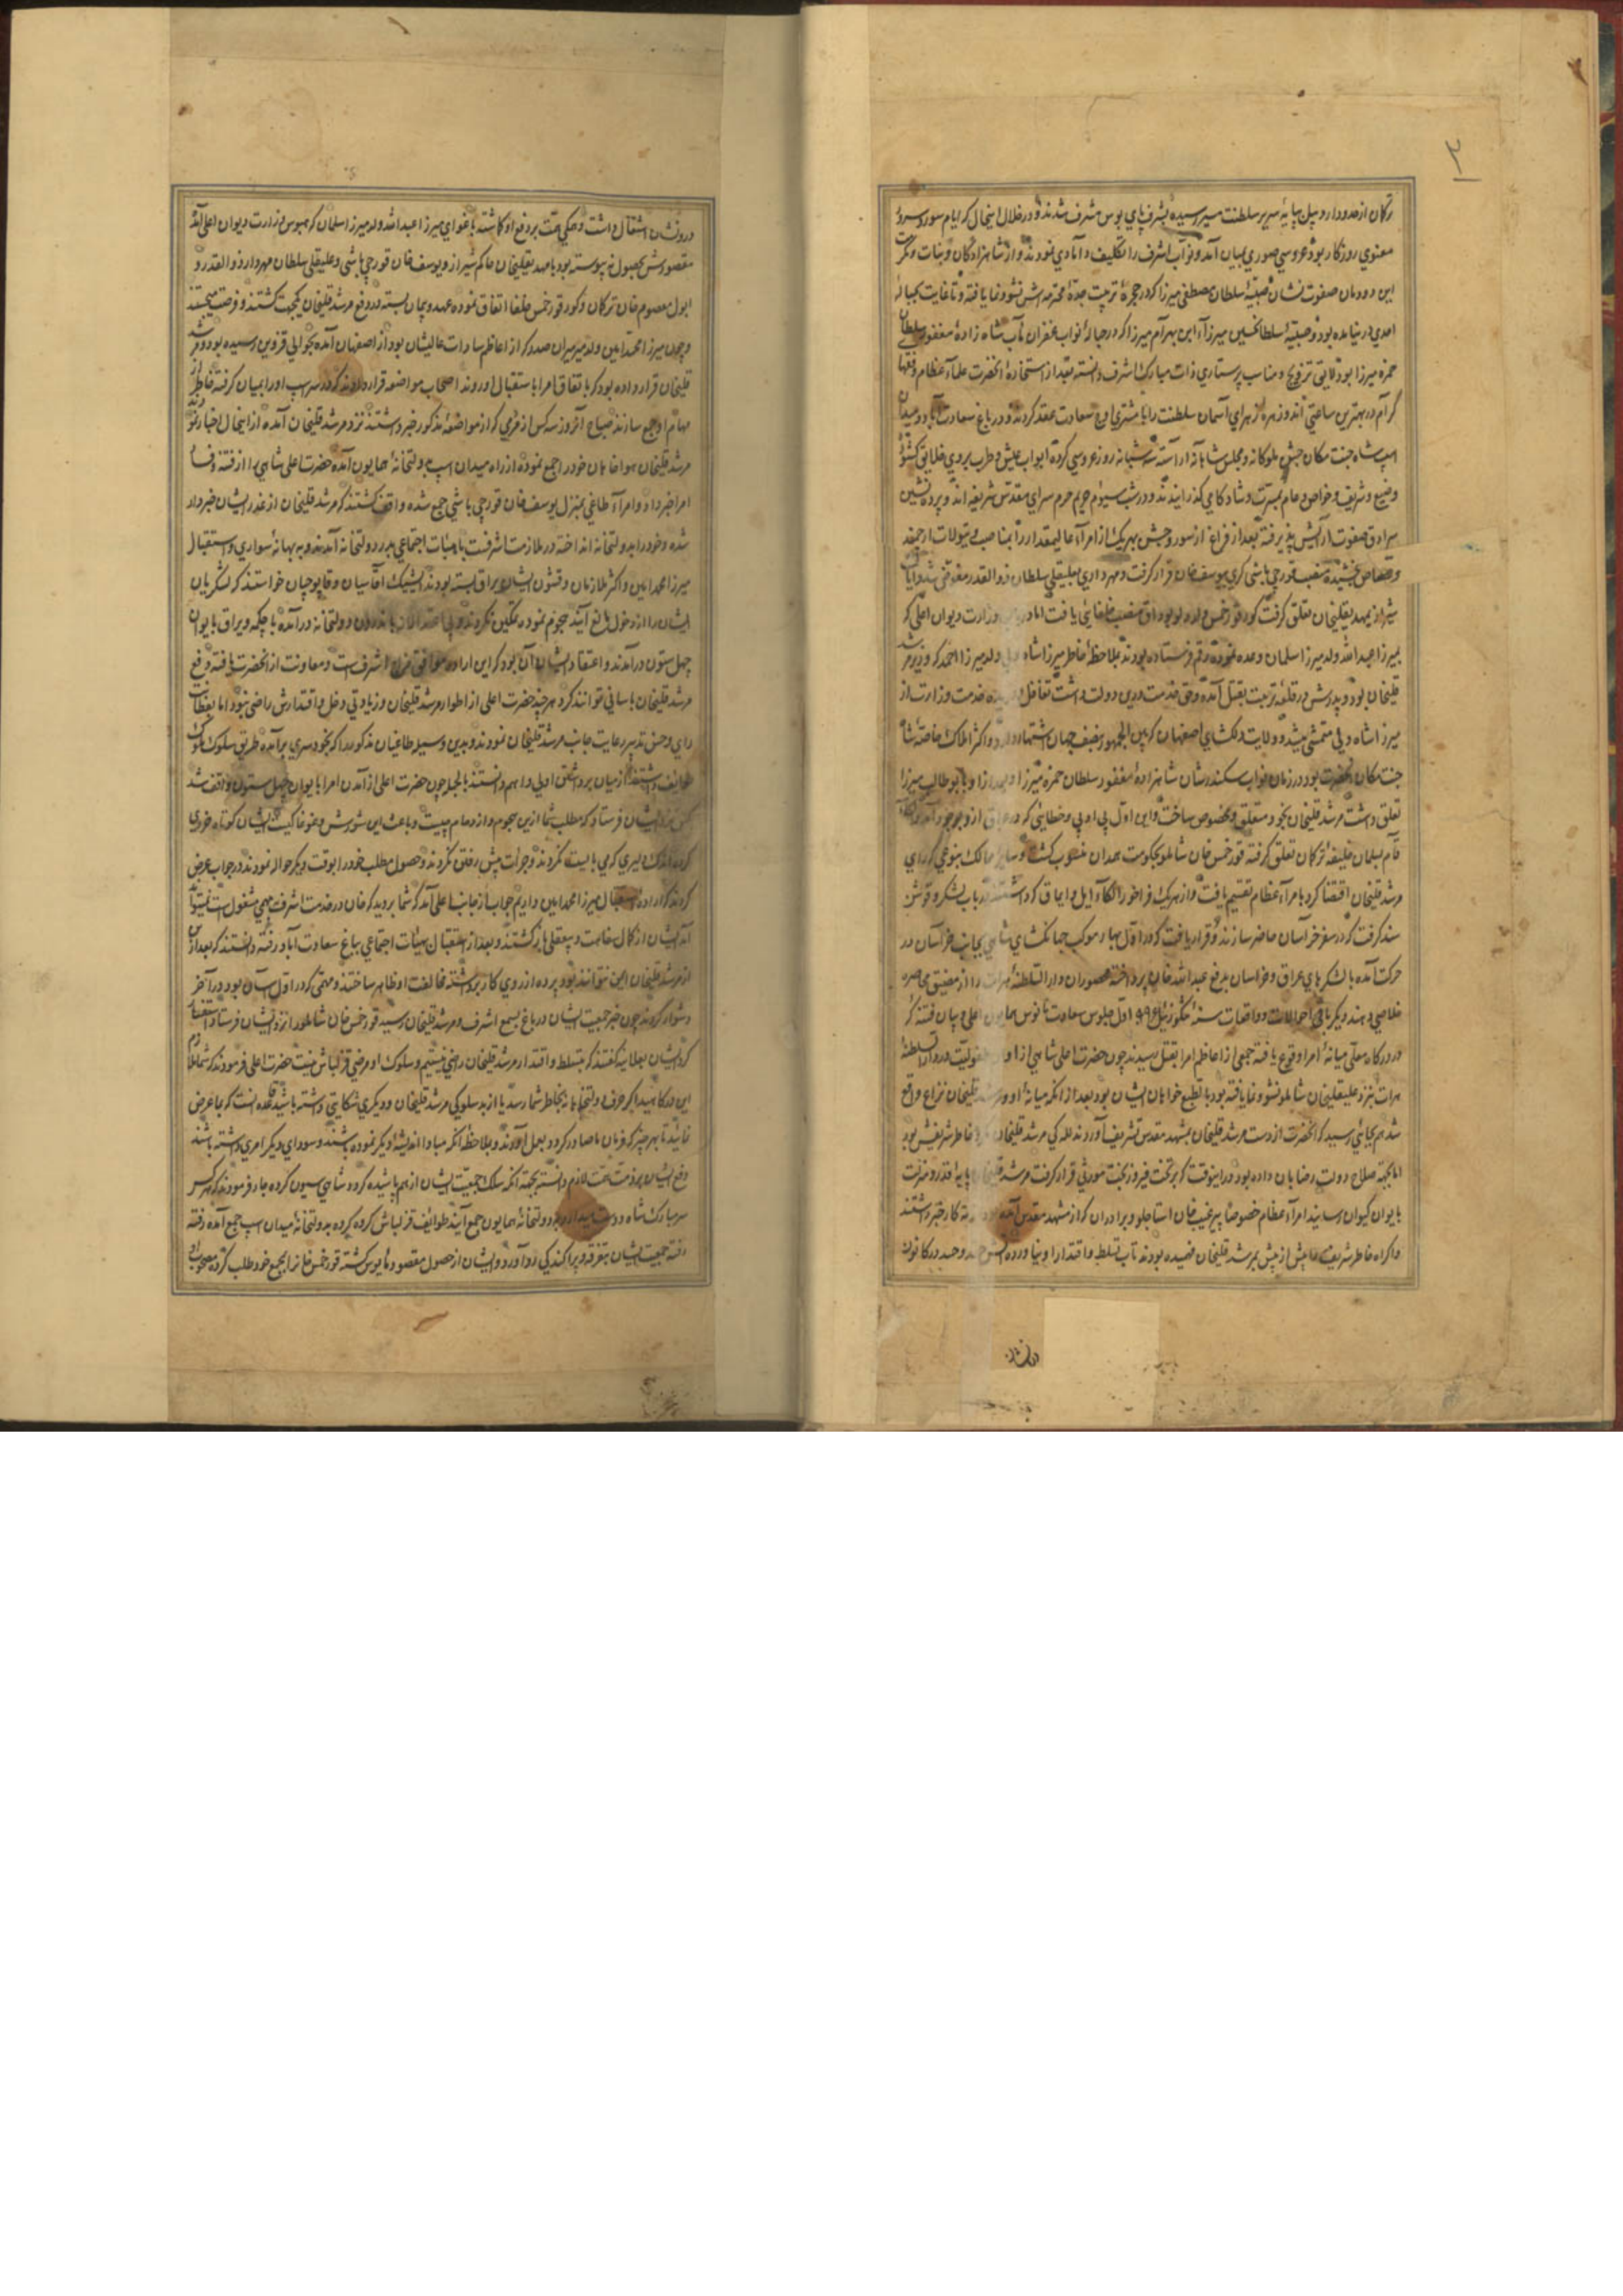 ۳
ترکان از حدود اردبیل بپایهٔ سریر سلطنت مسیر رسیده بشرف پای بوس مشرف شدند و در خلال اینحال که ایام سور و سرور
معنوی روزگار بود عروسی صوری بمیان آمد و نواب اشرف را تکلیف دامادی نمودند و از شاهزادگان و بنات مکرمت
این دودمان صفوت نشان صبیهٔ سلطان مصطفی میرزا که در حجرهٔ تربیت جدهٔ محترمه اش نشو و نما یافته و تا غایت بحبالهٔ
احدی در نیامده بود و صبیهٔ سلطان حسین میرزا ابن بهرام میرزا که در حبالهٔ نواب غفران مآب شاه زادهٔ مغفور سلطان
حمزه میرزا بود لایق تزویج و مناسب پرستاری ذات مبارک اشرف دانسته بعد از استخارهٔ آنحضرت علماء عظام و فقهاء
کرام در بهترین ساعتی آن دو زهرهٔ زهرای آسمان سلطنت را با مشتری اوج سعادت عقد کردند و در باغ سعادت آباد و میدان
اسپ شاه جنت مکان جشن ملوکانه و مجلس شاهانه آراسته سه شبانه روز عروسی کرده ابواب عیش و طرب بروی خلایق کشودند
وضیع و شریف و خواص و عام بمسرت و شادکامی گذرانیدند و در شب سیوم حریم حرم سرای مقدس شریفه اند و پرده نشین
سرادق صفوت آرایش پذیرفته بعد از فراغ از سور و جشن بهر یک از امراء عالیمقدار را بمناصب و تیولات ارجمند
اختصاص بخشیده منصب قورچی باشی گری بیوسف خان قرار گرفت و مهرداری بعلیقلی سلطان ذوالقدر مفوض شد و ایالت
شیراز بمهدیقلیخان تعلق گرفت که ور قورخمس ولد ولو بوداق منصب خلفائی یافت اما در وزارت دیوان اعلی که
بمیرزا عبدالله ولد میرزا سلمان وعده نموده رقم فرستاده بودند ملاحظهٔ خاطر میرزا شاه ولی ولد میرزا احمد که وزیر مرشد
قلیخان بود و پدرش در قلعه تربت بقتل آمده حق خدمت درین دولت داشت تغافل خدمت وزارت از
میرزا شاه ولی متمشی میشد و ولایت دلگشای اصفهان که بین الجمهور بنصف جهان اشتهار دارد و اکثر املاک خاصه شاه
جنت مکان آنحضرت بود در زمان نواب سکندر شان شاهزادهٔ مغفور سلطان حمزه میرزا و بعد از او بابوطالب میرزا
تعلق داشت مرشد قلیخان بخود متعلق و مخصوص ساخت و این اول بی ادبی و خطایی که در عراق از و بوجود آمد
قام بسلمان خلیفه ترکان تعلق گرفته قورخمس خان شاملو بحکومت همدان منسوب گشت و سایر ممالک بنوعی که رای
مرشد قلیخان اقتضا کرد بامراء عظام تقسیم یافت و از هر یک فراخور الکاء و ایل و ایماق که داشتند در باب لشکر و قوشن
سند گرفت که در سفر خراسان حاضر سازند و قرار یافت که در اول بهار موکب جهانگشای شاهی بجانب خراسان در
حرکت آمده با لشکرهای عراق و خراسان بدفع عبدالله خان پرداخته محصوران دارالسلطنهٔ هرات را از مضیق محاصره
خلاصی دهند دیگر باقی احوالات و واقعات سنهٔ تنگوزئیل ۹۹۶ اول جلوس سعادت مانوس همایون اعلی و بیان فتنه که
در درگاه معلی میانهٔ امرا وقوع یافته جمعی از اعاظم امرا بقتل رسیدند چون حضرت اعلی شاهی از اوان طفولیت در دارالسلطنهٔ
هرات بنزد علیقلیخان شاملو نشو و نما یافته بود بالطبع خواهان ایشان بود بعد از آنکه میانهٔ او و مرشد قلیخان نزاع واقع
شد امر بجائی رسید که آنحضرت از دست مرشد قلیخان بمشهد مقدس تشریف آوردند للکی مرشد قلیخان خاطر شریفش بود
اما بجهته صلاح دولت رضا بآن داده بود در اینوقت که بر تخت فیروز بخت موروثی قرار گرفت مرشد قلیخان پایه قدر و منزلت
بایوان کیوان رسانید امراء عظام خصوصا پیرغیب خان استاجلو و برادران که از مشهد مقدس آمده کار خبر داشتند
و اکراه خاطر شریف مآبش از پیش بمرشد قلیخان فهمیده بودند تاب تسلط و اقتدار او نیاورده آتش حقد و حسد در کانون
درونشان
درونشان اشتعال داشت و همگی همت بر دفع او گماشته باغوای میرزا عبدالله ولد میرزا سلمان که بهوس وزارت دیوان اعلی آمده
مقصودش بحصول نه پیوسته بود با مهدیقلیخان حاکم شیراز و یوسف خان قورچی باشی و علیقلی سلطان مهردار ذوالقدر و
ابوالمعصوم خان ترکان و که ور قورخمس خلفا اتفاق نموده عهد و پیمان بسته در دفع مرشد قلیخان یکجهت گشتند و فرصت میجستند
و چون میرزا محمد امین ولد میر میران صدر که از اعاظم سادات عالیشان بود از اصفهان آمده بحوالی قزوین رسیده بود و مرشد
قلیخان قرار داده بود که باتفاق امرا باستقبال او روند اصحاب مواضعه قرار دادند که در سر اسپ او را بمیان گرفته خاطر از
مهام او جمع سازند صباح آنروز سه کس از مردمی که از مواضعهٔ مذکور خبر داشتند نزد مرشد قلیخان آمده از اینحال اخبار نمودند
مرشد قلیخان هواخاهان خود را جمع نموده از راه میدان اسپ بدولتخانهٔ همایون آمده حضرت اعلی شاهی را از فتنه و فساد
امرا خبر داد و امراء طاغی بمنزل یوسف خان قورچی باشی جمع شده واقف گشتند که مرشد قلیخان از غدر ایشان خبردار
شده و خود را بدولتخانه انداخته در ملازمت اشرفست بهیات اجتماعی بدر دولتخانه آمدند و به بهانهٔ سواری و استقبال
میرزا محمد امین و اکثر ملازمان و قشون ایشان یراق بسته بودند ایشیک آقاسیان و قاپوچیان خواستند که لشکریان
ایشان را از دخول مانع آیند هجوم نموده تمکین نکردند و بی اعتدالانه باندرون دولتخانه درآمده با چکمه و یراق بایوان
چهل ستون درآمدند و اعتقاد ایشان آن بود که این اراده موافق مزاج اشرف است و معاونت از آنحضرت یافته دفع
مرشد قلیخان باسانی توانند کرد هر چند حضرت اعلی از اطوار مرشد قلیخان و زیادتی دخل و اقتدارش راضی نبود اما بفطانت
رای و حسن تدبیر رعایت جانب مرشد قلیخان نمودند و بدین وسیله طاغیان مذکور را که بخودسری برآمده طریق سلوک ملوک
طوایف داشتند از میان برداشتن اولی و اهم دانستند بالجمله چون حضرت اعلی از آمدن امرا بایوان چهل ستون واقف شد
کس نزد ایشان فرستاد که مطلب شما ازین هجوم و ازدحام چیست و باعث این شورش و غوغا کیست ایشان کوتاه خردی
کرده اندک دلیری که می بایست نکردند و جرات پیش رفتن نکردند و حصول مطلب خود را بوقت دیگر حواله نمودند در جواب عرض
کردند که ارادهٔ استقبال میرزا محمد امین داریم جواب از جانب اعلی آمد که شما بروید که خان در خدمت اشرف بمهمی مشغول است نمیتواند
آمد ایشان از کمال سفاهت و بیعقلی بازگشتند و بعد از استقبال بهیات اجتماعی بباغ سعادت آباد رفته دانستند که بعد ازین
از مرشد قلیخان ایمن نتوانند بود پرده از روی کار برداشته مخالفت او ظاهر ساختند و مهمی که در اول آسان بود در آخر
دشوار کردند چون خبر جمعیت ایشان در باغ بسمع اشرف و مرشد قلیخان رسید قورخمس خان شاملو را نزد ایشان فرستاد استفسار
کرد ایشان بعلانیه گفتند که بتسلط و اقتدار مرشد قلیخان راضی نیستیم و سلوک او مرضی قزلباش نیست حضرت اعلی فرمودند که شما ملازم
این درگاهید اگر حرف دولتخاهانه بخاطر شما رسد یا از بد سلوکی مرشد قلیخان و دیگری شکایتی داشته باشید قاعده آنست که بما عرض
نمائید تا بهر چیز که فرمان ما صادر گردد بعمل آورند و بملاحظه آنکه مبادا اندیشهٔ دیگر نموده باشند و سودای دیگر امری داشته باشند
دفع ایشان بر ذمت همت لازم دانسته بجهته آنکه سلک جمعیت ایشان از هم پاشیده گردد شاهی سیون کرده جار فرمودند که هر کس
سر مبارک شاه دوست میدارد بدر دولتخانهٔ همایون جمع آیند طوایف قزلباش گروه گروه بدولتخانهٔ میدان اسپ جمع آمده رفته
رفته جمعیت ایشان بتفرقه و پراکندگی رو آورد و ایشان از حصول مقصود مایوس گشته قورخمس خانرا بجمع خود طلب کرده بمصحوب او